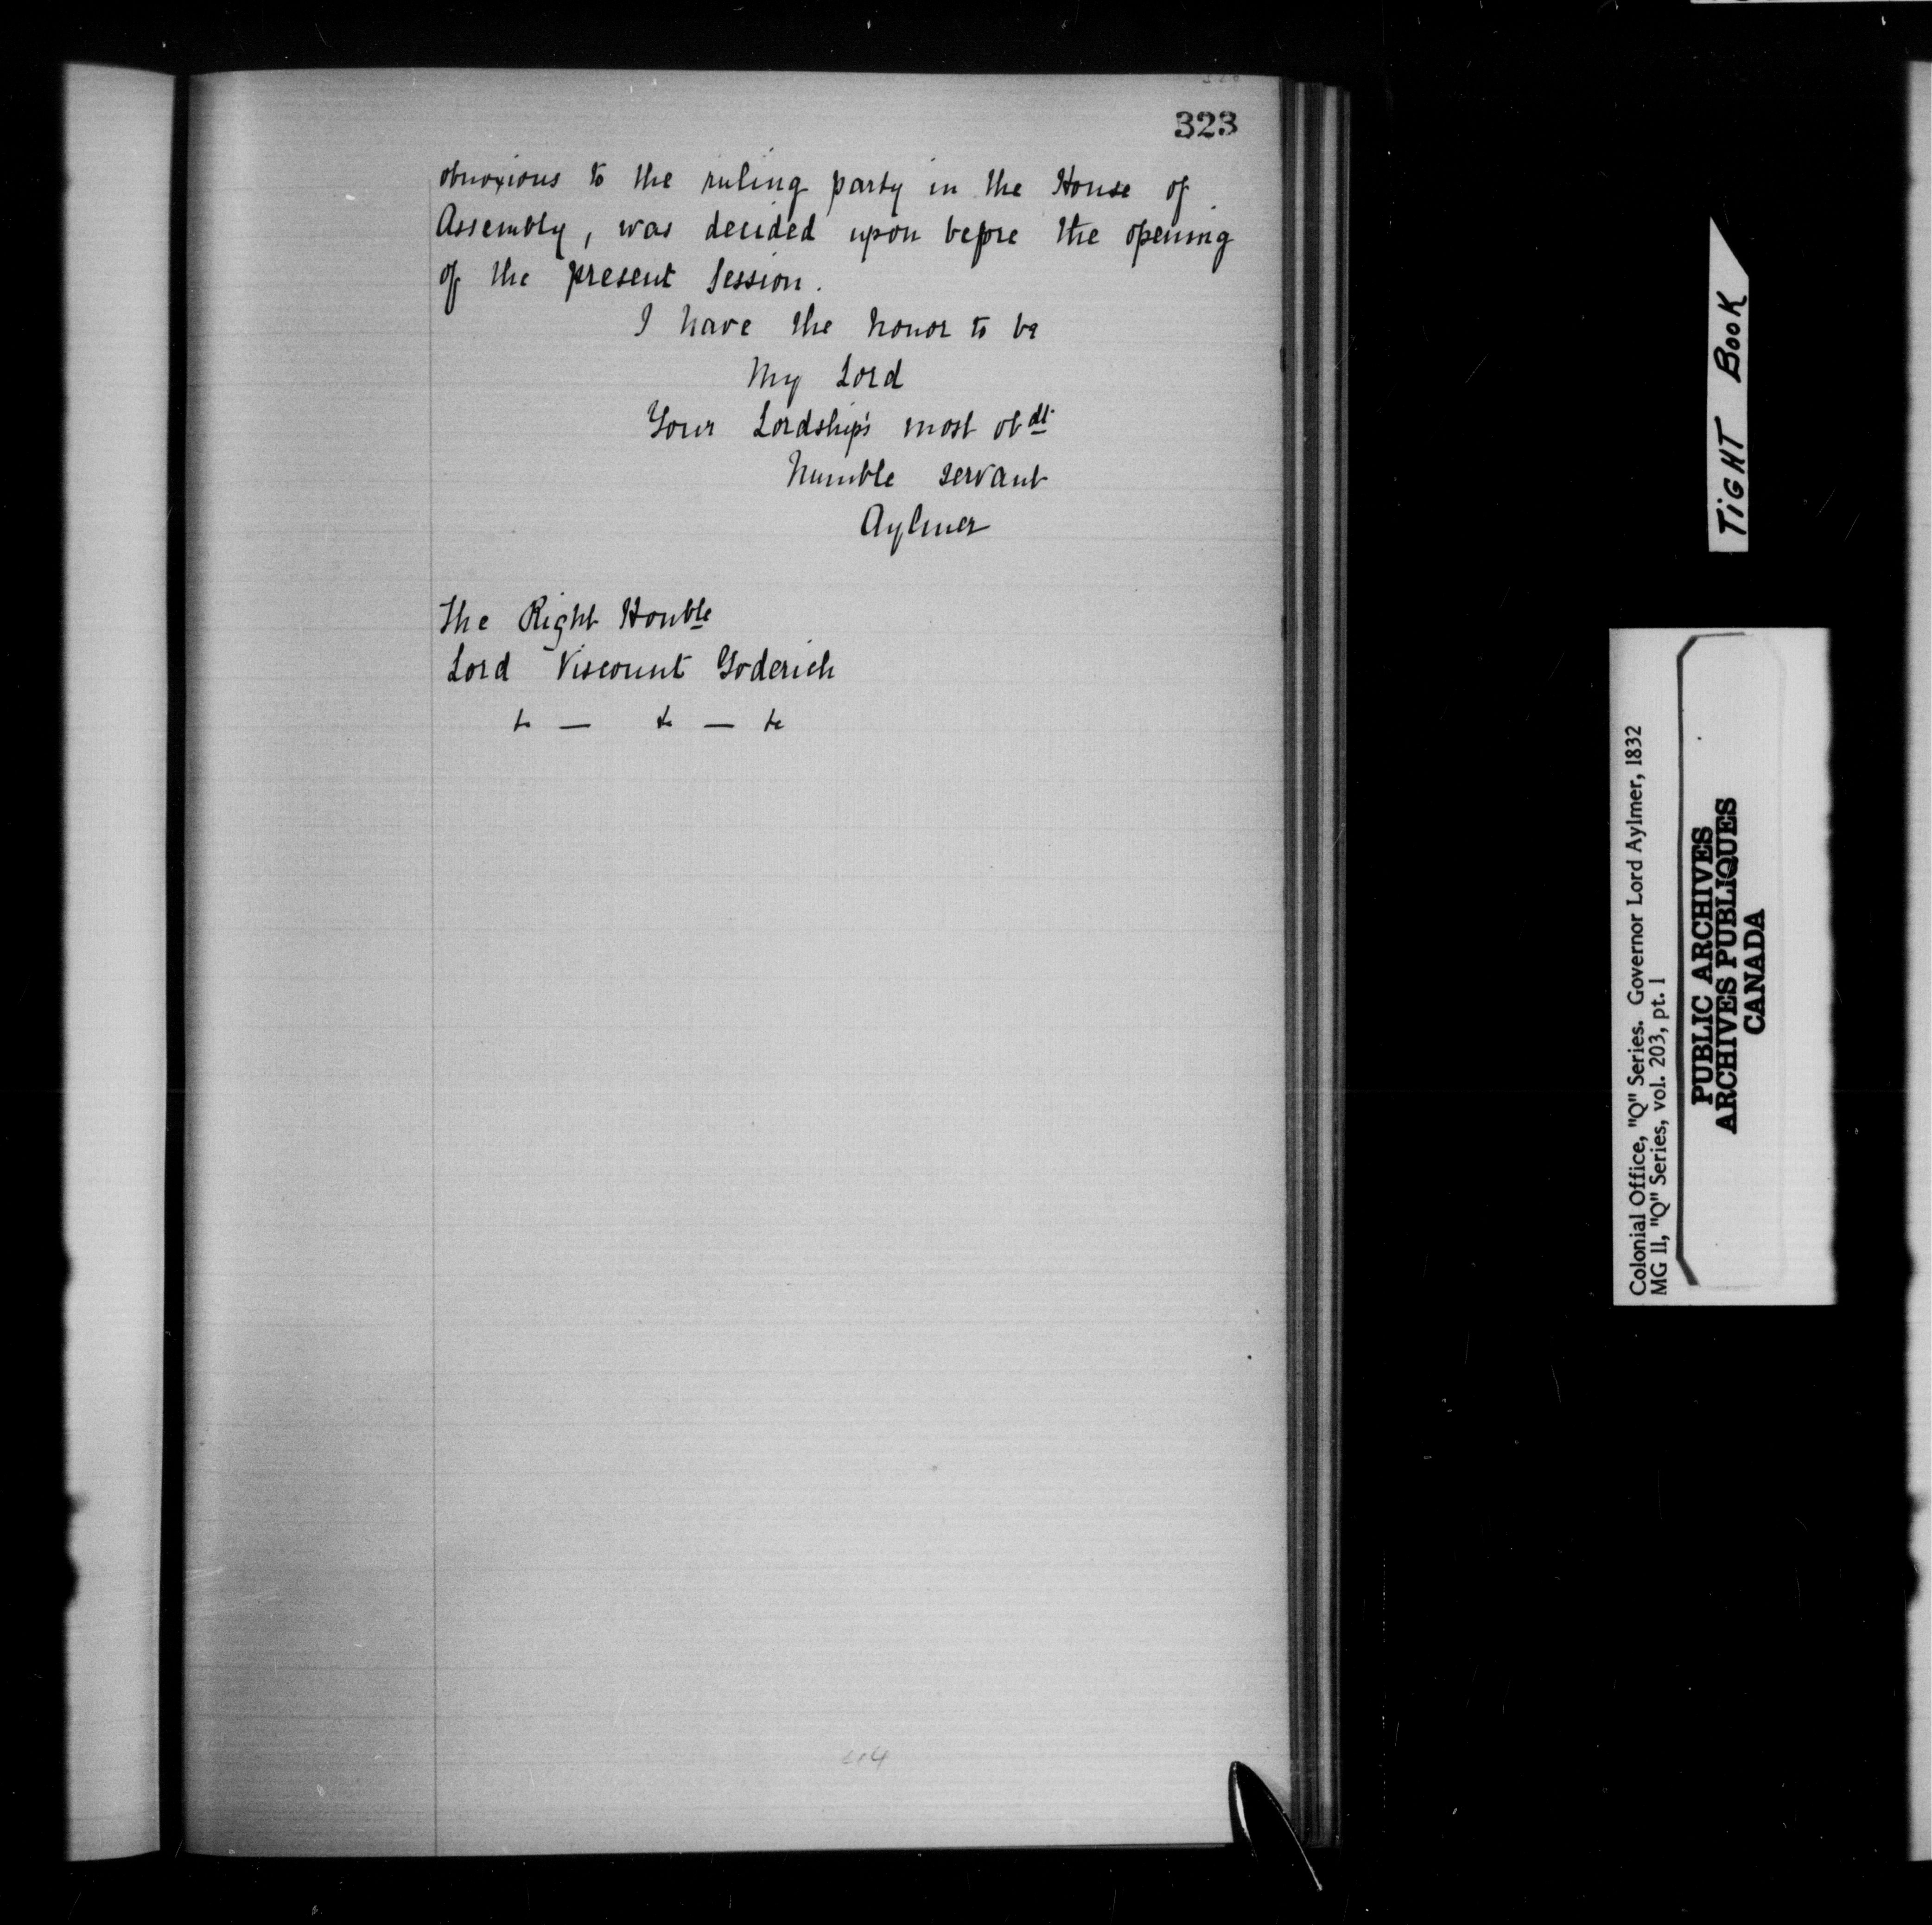 323
obnoxious to the ruling party in the House of
Assembly, was decided upon before the opening
of the present Session.
I have the honor to be
My Lord
Your Lordship's most obdt
humble servant
Aylmer
The Right Honble
Lord Viscount Goderich
&c — &c — &c
TIGHT BOOK
Colonial Office, "Q" Series. Governor Lord Aylmer, 1832
MG 11, "Q" Series, vol. 203, pt. 1
PUBLIC ARCHIVES
ARCHIVES PUBLIQUES
CANADA